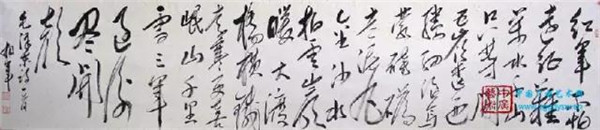 红军不怕
远征难
万水千山
只等闲
五岭逶迤
腾细浪乌
蒙磅礴
走泥丸
金沙水
拍云崖
暖大渡
桥横铁
索寒更喜
岷山千里
雪三军
过后
尽开
颜
毛泽东诗一首